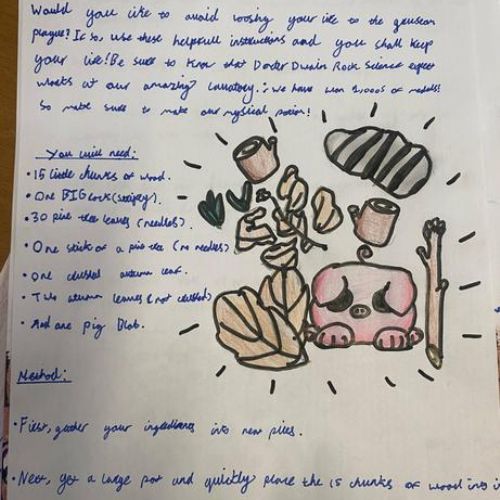 Would you like to avoid loosing your life to the gruesom
plague? If so, use these helpfull instructions and you shall keep
your life! Be sure to know that Docter Dwain Rock Science expert
works at our amazing We have won 1,000s of medals!
So make sure to make our mystical potion!
You will need:
• 15 little chunks of wood.
• One BIG rock (stripey).
• 30 pine tree leaves (needles).
• One stick of a pine tree (no needles)
• One crushed autumn leaf.
• Two autumn leaves (not crushed)
• And one pig Blob.
Method:
• First, gather your ingredients into neat piles.
• Next, get a large pot and quickly place the 15 chunks of wood into